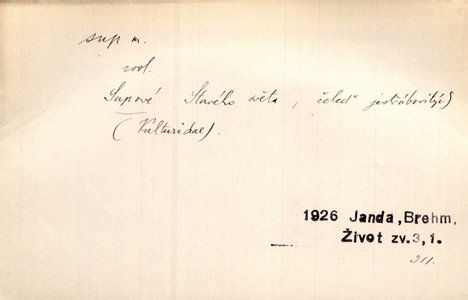 sup m.
zool.
Supové Starého světa, čeleď jestřábovitých
(Vulturidae).
1926 Janda, Brehm,
Život zv.3,1.
311.